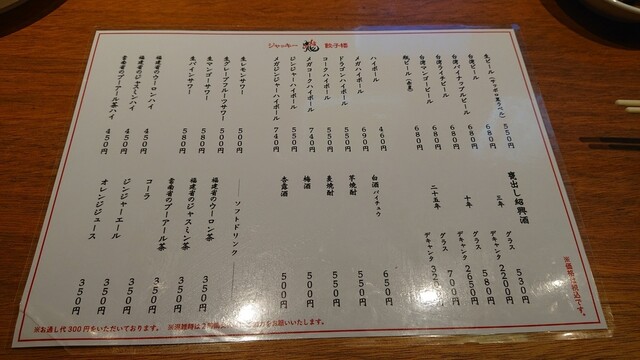 ジャッキー 龍 餃子楼
生ビール（サッポロ黒ラベル） 550円
台湾ビール 680円
台湾パイナップルビール 680円
台湾ライチビール 680円
台湾マンゴービール 680円
瓶ビール
ハイボール 460円
メガハイボール 690円
ドラゴンハイボール 550円
コークハイボール 550円
メガコークハイボール 740円
ジンジャーハイボール 550円
メガジンジャーハイボール 740円
生レモンサワー 500円
生グレープフルーツサワー 500円
生マンゴーサワー 580円
生パインサワー 580円
福建省のウーロンハイ 450円
福建省のジャスミンハイ 450円
雲南省のプーアール茶ハイ 450円
甕出し紹興酒
三年 グラス 530円
デキャンタ 2200円
十年 グラス 580円
デキャンタ 2650円
二十五年 グラス 700円
デキャンタ
白酒 パイチュウ 650円
芋焼酎 550円
麦焼酎 550円
梅酒 500円
杏露酒 500円
ソフトドリンク
福建省のウーロン茶 350円
福建省のジャスミン茶 350円
雲南省のプーアール茶 350円
コーラ 350円
ジンジャーエール 350円
オレンジジュース 350円
※価格は税込です。
※お通し代300円をいただいております。 ※混雑時は2時間 お願いいたします。